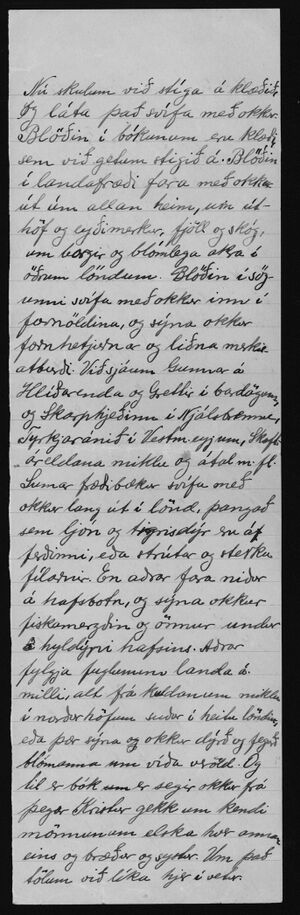 Nú skulum við stíga á klæðið,
og láta það svífa með okkur.
Blöðin í bókunum eru klæði
sem við getum stigið á. Blöðin
í landafræði fara með okkur
út um allan heim, um út-
höf og eyðimerkur, fjöll og skóg,
um borgir og blómlega akra í
öðrum löndum. Blöðin í sög-
unni svífa með okkur inn í
fornöldina, og sýna okkur
fornhetjurnar og liðna merkis
atburði. Við sjáum Gunnar á
Hlíðarenda og Gretti í bardögum,
og Skarphjeðinn í Njálsbrennu,
Tyrkjaránið í Vestm.eyjum, Skaft-
áreldana miklu og ótal m. fl.
Sumar fræðibækur svífa með
okkur langt út í lönd, þangað
sem ljón og tígrisdýr eru á
ferðinni, eða strútar og sterku
fílarnir. En aðrar fara niður
á hafsbotn, og sýna okkur
fiskamergðin og örmur undur
hyldýpi hafsins. Aðrar
fylgja fuglunum landa á
milli, alt frá kuldanum mikla
í norðurhöfum suður í heitu löndin,
eða þær sýna okkur dýrð og fegurð
blómanna um víða veröld. Og
til er bók um er segir okkur frá
þegar Kristur gekk um kendi
mönnunum elska hver annan
eins og bræður og systur. Um það
tölum við líka hjer í vetur.